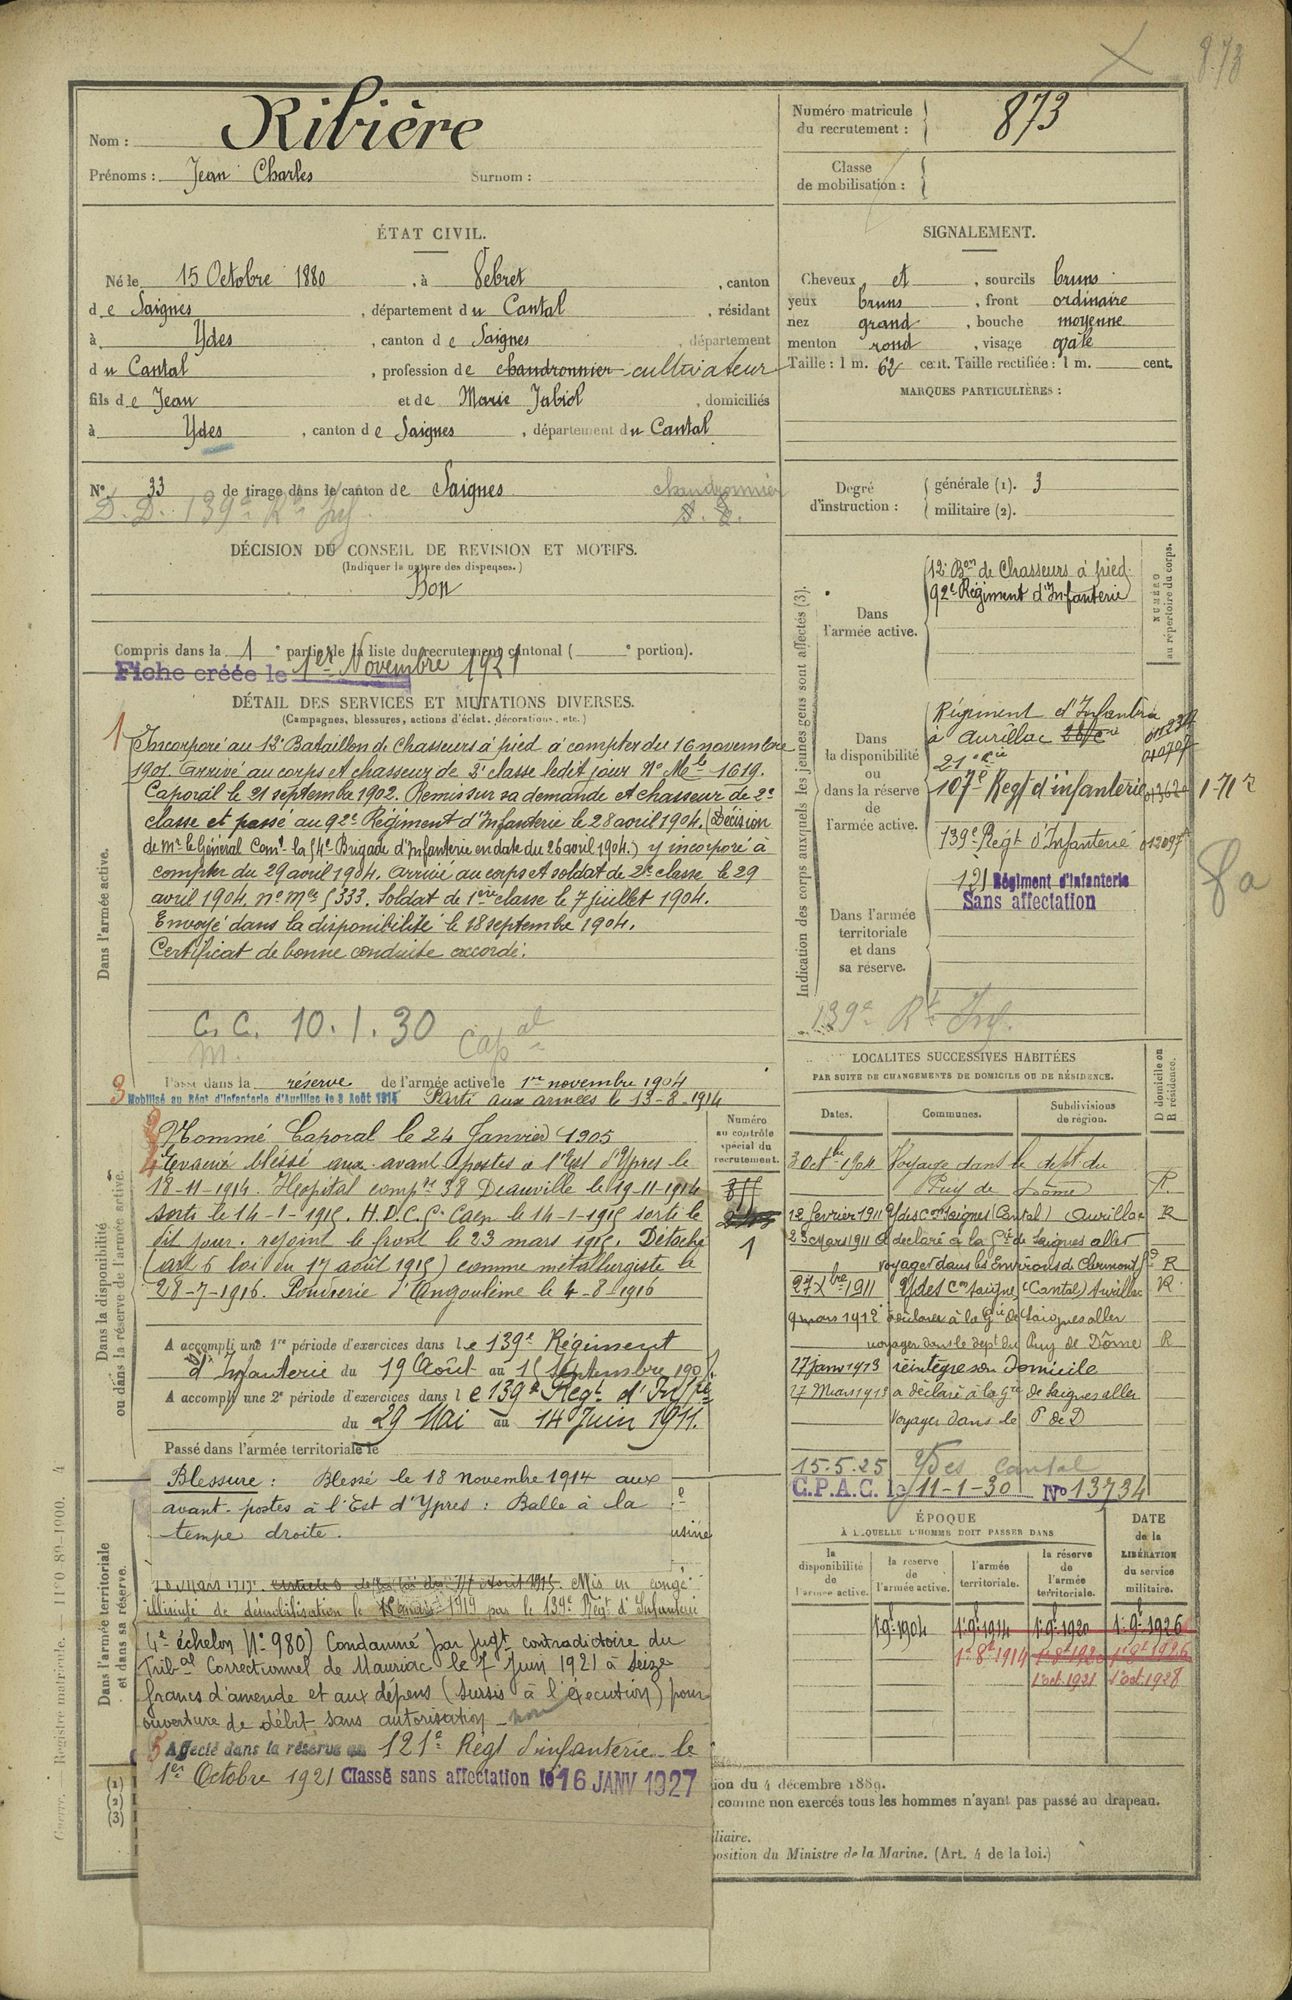 873
Nom : Ribière
Prénoms : Jean Charles Surnom :
Numéro matricule
du recrutement : 873
Classe
de mobilisation :
ÉTAT CIVIL.
Né le 15 Octobre 1880, à Vebret, canton
de Saignes, département du Cantal, résidant
à Ydes, canton de Saignes, département
du Cantal, profession de chaudronnier cultivateur
fils de Jean et de Marie Jabiol, domiciliés
à Ydes, canton de Saignes, département du Cantal
N° 33 de tirage dans le canton de Saignes chaudronnier
D. D. 139e Rt Inf.
DÉCISION DU CONSEIL DE REVISION ET MOTIFS.
(Indiquer la nature des dispenses.)
Bon
Compris dans la 1e partie de la liste du recrutement cantonal ( e portion).
Fiche créée le 1er Novembre 1921
SIGNALEMENT.
Cheveux et, sourcils bruns
yeux bruns, front ordinaire
nez grand, bouche moyenne
menton rond, visage ovale
Taille : 1 m. 62 cent. Taille rectifiée : 1 m. cent.
MARQUES PARTICULIÈRES :
Degré
d'instruction :
générale (1). 3
militaire (2).
DÉTAIL DES SERVICES ET MUTATIONS DIVERSES.
(Campagnes, blessures, actions d'éclat, décorations, etc.)
Dans l'armée active.
1 Incorporé au 12e Bataillon de Chasseurs à pied à compter du 16 novembre
1901. Arrivé au corps et chasseur de 2e classe ledit jour N° Mle 1619.
Caporal le 21 septembre 1902. Remis sur sa demande et chasseur de 2e
classe et passé au 92e Régiment d'Infanterie le 28 avril 1904. (Décision
de Mr le Général Comt la 54e Brigade d'Infanterie en date du 26 avril 1904.) y incorporé à
compter du 29 avril 1904. Arrivé au corps et soldat de 2e classe le 29
avril 1904. n° Mle 5333. Soldat de 1ère classe le 7 juillet 1904.
Envoyé dans la disponibilité le 18 septembre 1904.
Certificat de bonne conduite accordé.
C. C. 10.1.30
M. Capal
Passé dans la réserve de l'armée active le 1er novembre 1904
3 Mobilisé au Régt d'Infanterie d'Aurillac le 3 Août 1914 Parti aux armées le 13-8-1914
Dans la disponibilité
ou dans la réserve de l'armée active.
2 Nommé Caporal le 24 Janvier 1905
4 Evacué blessé aux avant postes à l'Est d'Ypres le
18-11-1914. Hopital compre 38 Deauville le 19-11-1914
sorti le 14-1-1915. H.D.C.5 Caen le 14-1-1915 sorti le
dit jour. rejoint le front le 23 mars 1915. Détaché
(art 6 loi du 17 août 1915) comme métallurgiste le
28-7-1916. Poudrerie d'Angoulême le 4-8-1916
Numéro
au contrôle
spécial du
recrutement.
1
A accompli une 1re période d'exercices dans le 139e Régiment
d'Infanterie du 19 Août au 15 Septembre 190
A accompli une 2e période d'exercices dans le 139e Régt d'Inftie
du 29 Mai au 14 Juin 1911.
Passé dans l'armée territoriale le
Dans l'armée territoriale
et dans sa réserve.
Blessure : Blessé le 18 novembre 1914 aux
avant-postes à l'Est d'Ypres : Balle à la
tempe droite.
usine
Mis en congé
illimité de démobilisation le mars 1919 par le 139e Régt d'Infanterie
4e échelon N° 980) Condamné par jugt contradictoire du
Tribal Correctionnel de Mauriac le 7 Juin 1921 à seize
francs d'amende et aux dépens (sursis à l'éxecution) pour
ouverture de débit sans autorisation
5 Affecté dans la réserve au 121e Régt d'infanterie le
1er Octobre 1921 Classé sans affectation le 16 JANV 1927
(1)
(2)
(3)
Indication des corps auxquels les jeunes gens sont affectés (3).
NUMÉRO
au répertoire du corps.
Dans
l'armée active.
12e Bon de Chasseurs à pied.
92e Régiment d'Infanterie
Dans
la disponibilité
ou
dans la réserve
de
l'armée active.
Régiment d'Infanterie
à Aurillac
107e Regt d'infanterie
139e Régt d'Infanterie
Dans l'armée
territoriale
et dans
sa réserve.
121 Régiment d'Infanterie
Sans affectation
139e Rt Inf.
LOCALITÉS SUCCESSIVES HABITÉES
PAR SUITE DE CHANGEMENTS DE DOMICILE OU DE RÉSIDENCE.
Dates. Communes. Subdivisions
de région. D domicile ou
R résidence.
3 Octbre 1904 Voyage dans le dept du
Puy de Dôme R.
12 février 1911 Ydes Con Saignes (Cantal) Aurillac R
23 Mars 1911 a déclaré à la Gie de Saignes aller
voyager dans les Environs de Clermont Fd R
27 Xbre 1911 Ydes Con Saignes (Cantal) Aurillac R
9 mars 1912 a déclaré à la Gie de Saignes aller
voyager dans le dept du Puy de Dôme R
27 janv 1913 réintègre son domicile
27 Mars 1913 a déclaré à la Gie de Saignes aller
voyager dans le P de D
15.5.25 Ydes Cantal
G.P.A.C. le 11-1-30 No 13734
ÉPOQUE
À LAQUELLE L'HOMME DOIT PASSER DANS
DATE
de la
LIBÉRATION
du service
militaire.
la
disponibilité
de
l'armée active.
la réserve
de
l'armée active.
l'armée
territoriale.
la réserve
de
l'armée
territoriale.
1.9.1904 1.9.1914 1.9.1920 1.9.1926
1er 8t 1914 1er 8t 1920 1er 8t 1926
1 oct. 1921 1 oct. 1928
ion du 4 décembre 1889.
comme non exercés tous les hommes n'ayant pas passé au drapeau.
iliaire.
position du Ministre de la Marine. (Art. 4 de la loi.)
Guerre. — Registre matricule. — 1170-89-1900. 4